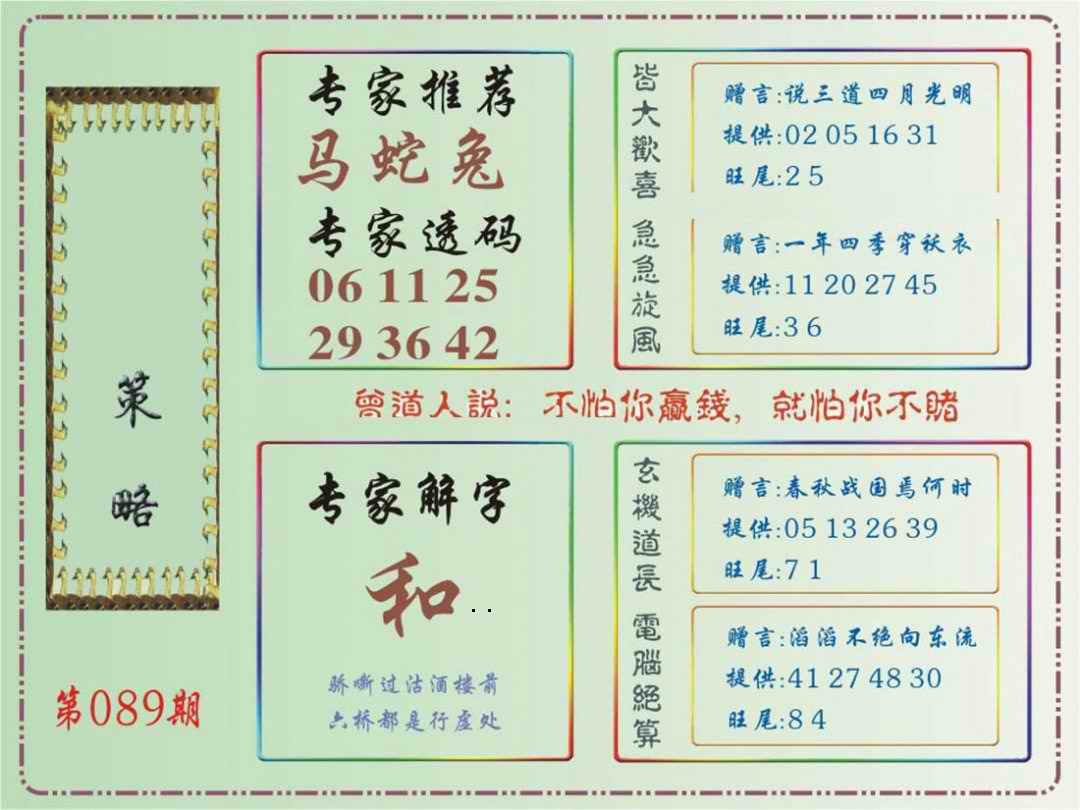 策略
第089期
专家推荐
马蛇兔
专家透码
06 11 25
29 36 42
皆大歡喜
赠言:说三道四月光明
提供:02 05 16 31
旺尾:2 5
急急旋風
赠言:一年四季穿袄衣
提供:11 20 27 45
旺尾:3 6
曾道人説: 不怕你贏錢, 就怕你不賭
专家解字
和..
骄嘶过沽酒楼前
六桥都是行虚处
玄機道長
赠言:春秋战国焉何时
提供:05 13 26 39
旺尾:7 1
電腦絕算
赠言:滔滔不绝向东流
提供:41 27 48 30
旺尾:8 4